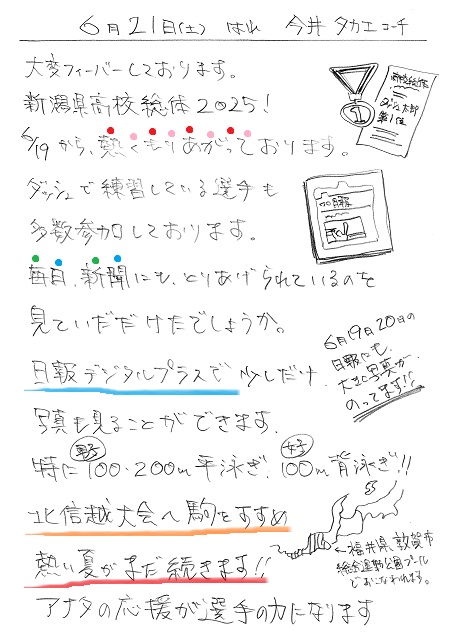 6月21日(土) はれ 今井 タカエ コーチ
大変フィーバーしております。
新潟県高校総体2025!
6/19から、熱くもりあがっております。
ダッシュで練習している選手も
多数参加しております。
毎日、新聞にも、とりあげられているのを
見ていだだけたでしょうか。
日報デジタルプラスで 少しだけ
写真も見ることができます。
特に 男子 100・200m 平泳ぎ、 女子 100m 背泳ぎ!!
北信越大会へ駒をすすめ
熱い夏がまだ続きます!!
アナタの応援が選手の力になります
高校総体
ダッシュ太郎
第1位
1
日報
6月19日20日の
日報にも、
大きな写真が
のってます!!
←福井県、敦賀市
総合運動公園プール
でおこなわれます。